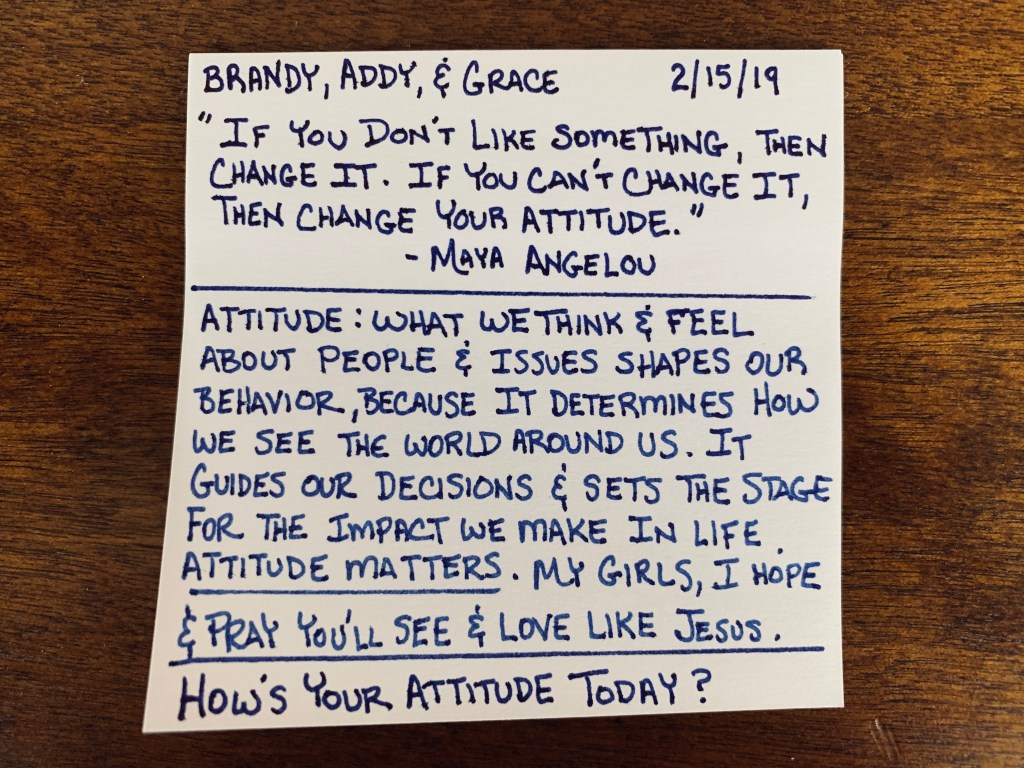 BRANDY, ADDY, & GRACE 2/15/19
"IF YOU DON'T LIKE SOMETHING, THEN
CHANGE IT. IF YOU CAN'T CHANGE IT,
THEN CHANGE YOUR ATTITUDE."
- MAYA ANGELOU
ATTITUDE: WHAT WE THINK & FEEL
ABOUT PEOPLE & ISSUES SHAPES OUR
BEHAVIOR, BECAUSE IT DETERMINES HOW
WE SEE THE WORLD AROUND US. IT
GUIDES OUR DECISIONS & SETS THE STAGE
FOR THE IMPACT WE MAKE IN LIFE.
ATTITUDE MATTERS. MY GIRLS, I HOPE
& PRAY YOU'LL SEE & LOVE LIKE JESUS.
HOW'S YOUR ATTITUDE TODAY?